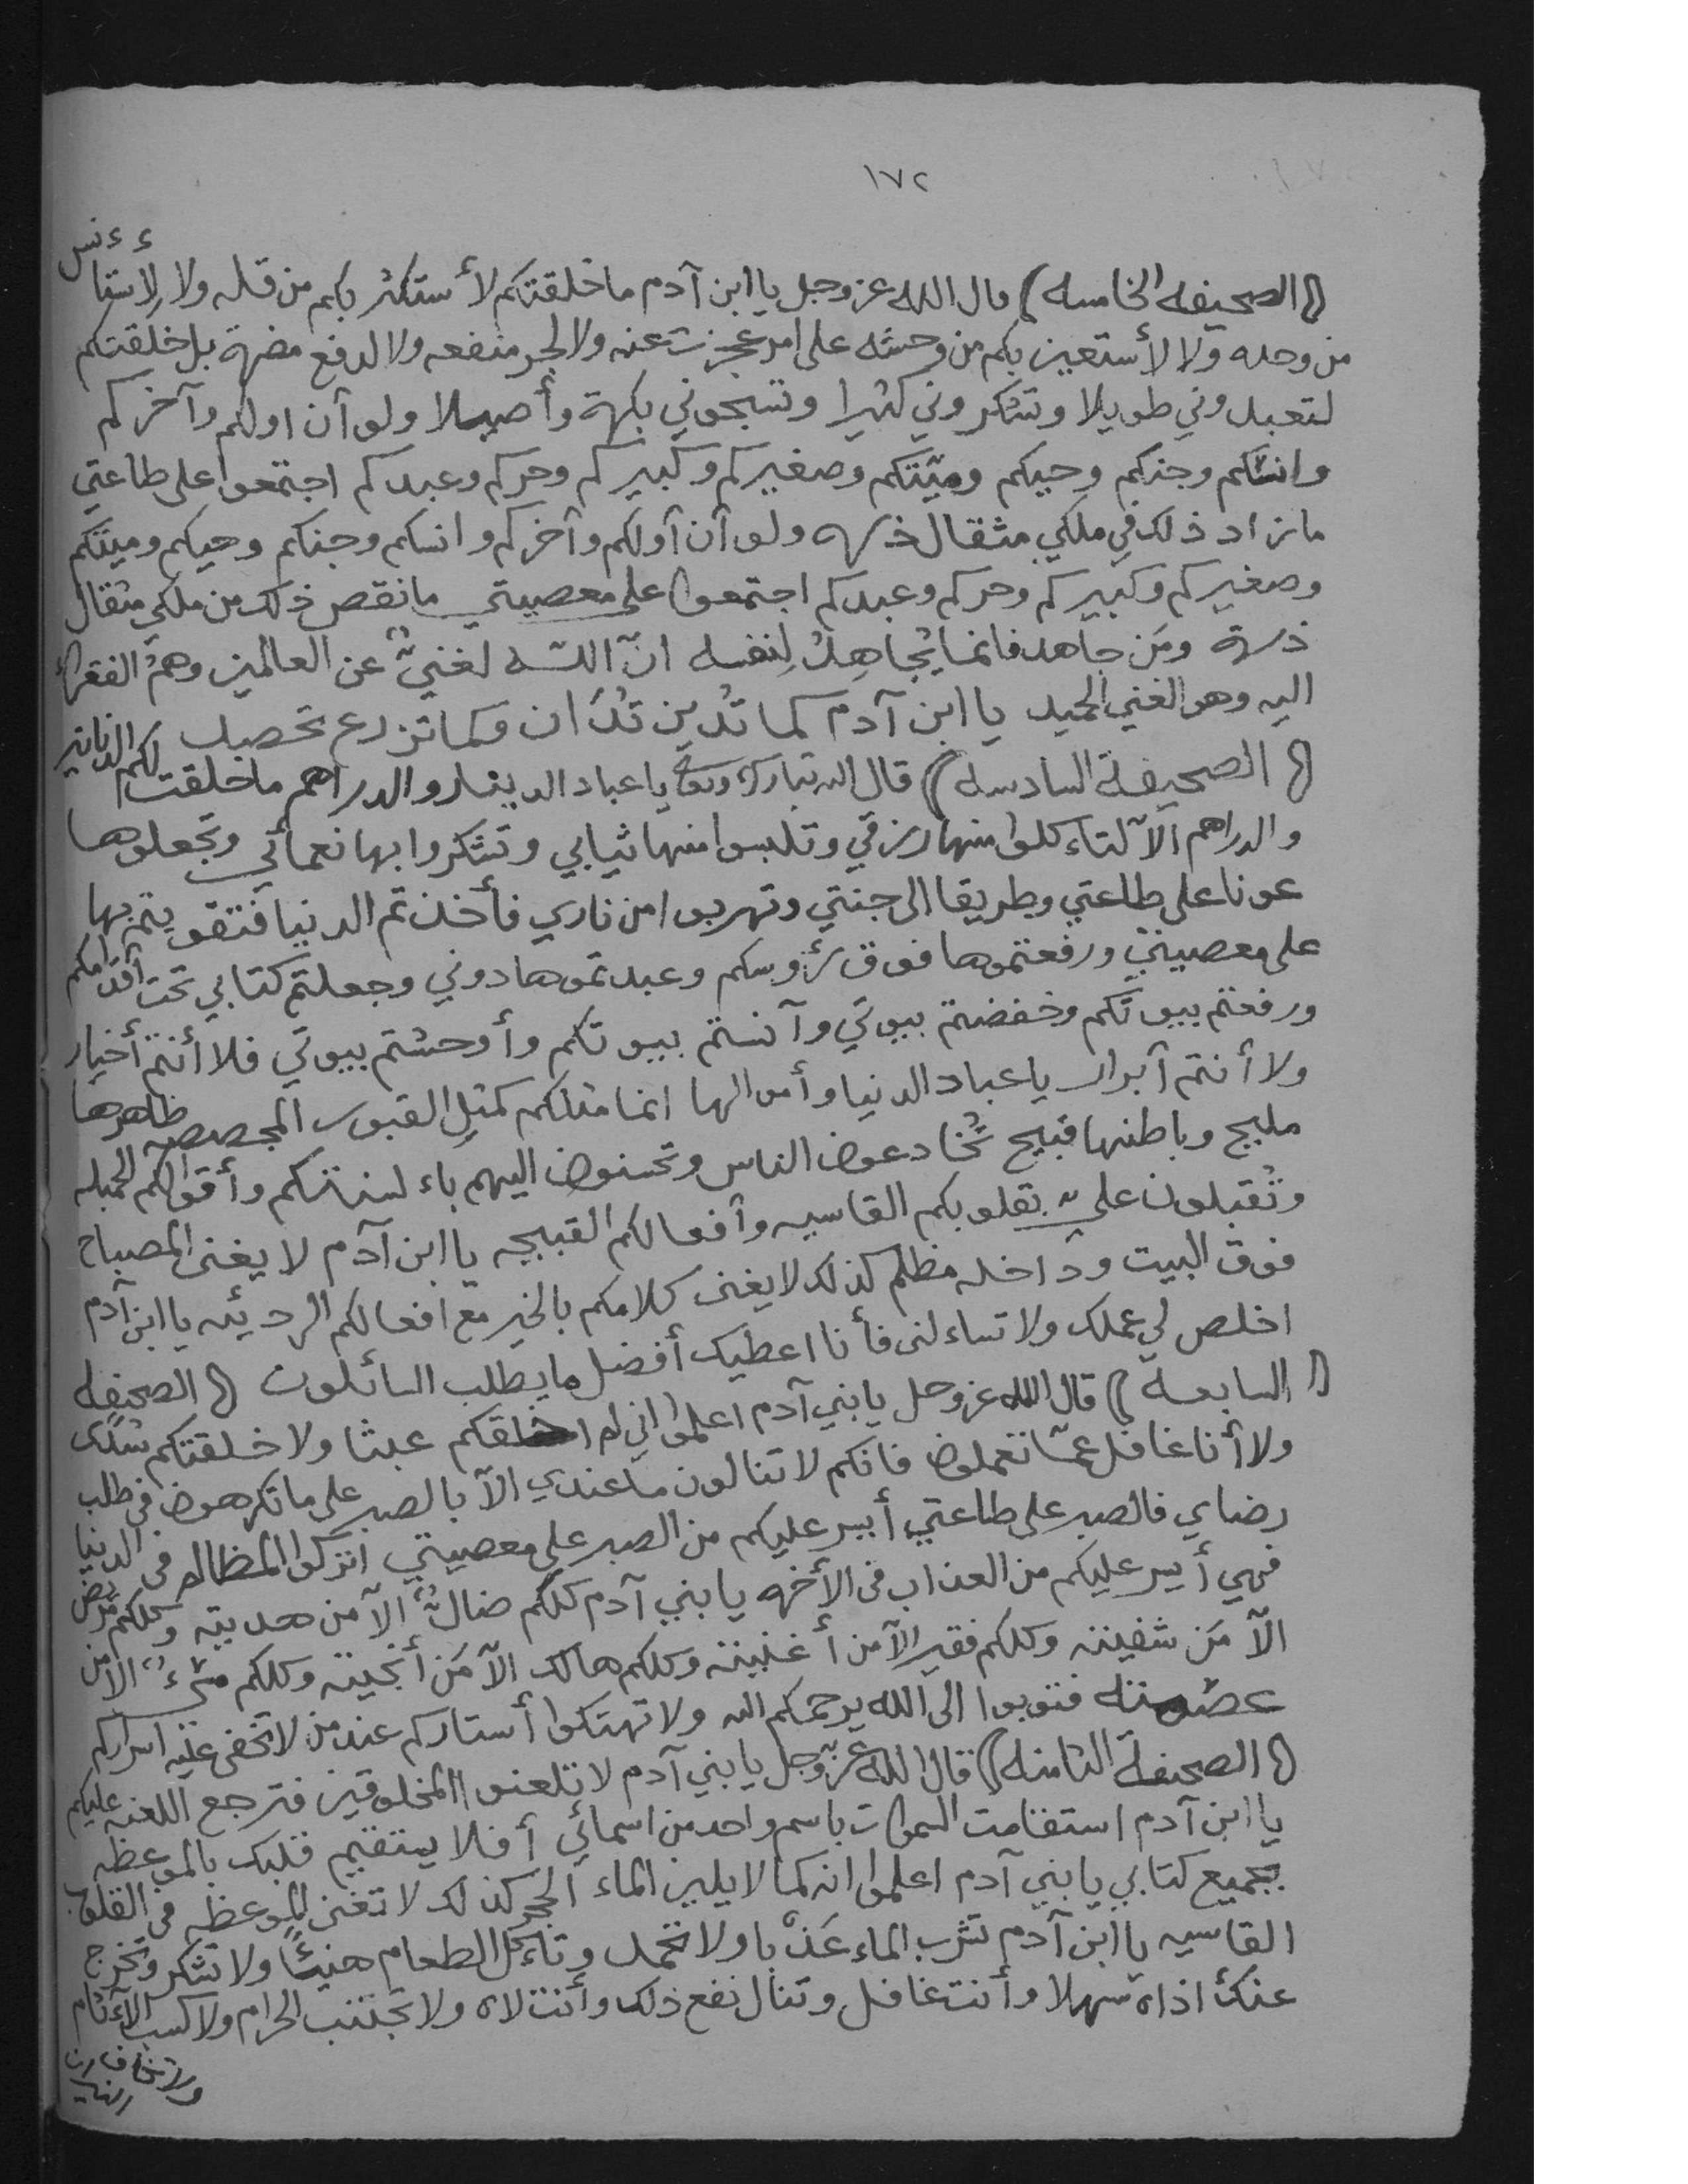 ١٧٢
(الصحيفه الخامسه) قال الله عز وجل يا ابن آدم ما خلقتكم لأستكثر بكم من قله ولا لأستأنس
من وحده ولا لأستعين بكم من وحشه على امر عجزت عنه ولا لجر منفعه ولا لدفع مضرة بل خلقتكم
لتعبدوني طويلا وتشكروني كثيرا وتسبحوني بكرة وأصيلا ولو آن اولكم وآخركم
وانسكم وجنكم وحيكم وميّتكم وصغيركم وكبيركم وحركم وعبدكم اجتمعوا على طاعتي
ما زاد ذلك في ملكي مثقال ذره ولو آن آولكم وآخركم وانسكم وجنكم وحيكم وميتكم
وصغيركم وكبيركم وحركم وعبدكم اجتمعوا على معصيتي ما نقص ذلك من ملكي مثقال
ذرة ومَن جاهد فانما يُجاهِدُ لِنفسه انّ اللّه لغنيٌّ عن العالمين وهمُ الفقرآء
اليه وهو الغني الحميد يا ابن آدم كما تُدين تُدَان وكما تزرع تحصد
(الصحيفة السادسه) قال الله تبارك وتعالى يا عباد الدينار والدراهم ما خلقت لكم الدنانير
والدراهم الّا لتاءكلوا منها رزقي وتلبسوا منها ثيابي وتشكروا بها نعمائي وتجعلوها
عونا على طاعتي وطريقا الى جنتي وتهربوا من ناري فأخذتم الدنيا فتقويتم بها
على معصيتي ورفعتموها فوق رؤوسكم وعبدتموها دوني وجعلتم كتابي تحت أقدامكم
ورفعتم بيوتكم وخفضتم بيوتي وآنستم بيوتكم وأوحشتم بيوتي فلا أنتم أخيار
ولا أنتم آبرار يا عباد الدنيا وأموالها انما مثلكم كمثل القبور المجصصه ظاهرها
مليح وباطنها قبيح تُخادعون الناس وتحسنون اليهم باءلسنتكم وأقوالكم الجميله
وتُقبلون عليّ بقلوبكم القاسيه وآفعالكم القبيحه يا ابن آدم لا يغنى المصباح
فوق البيت وداخله مظلم كذلك لا يغنى كلامكم بالخير مع افعالكم الرديئه يا ابن آدم
اخلص لي عملك ولا تساءلنى فأنا اعطيك أفضل ما يطلب السائلون (الصحيفه
السابعة) قال الله عز وجل يا بني آدم اعلموا اني لم اخلقكم عبثا ولا خلقتكم سُدًى
ولا أنا غافل عمّا تعملون فانكم لا تنالون ما عندي الّا بالصبر على ما تكرهون في طلب
رضاي فالصبر على طاعتي أيسر عليكم من الصبر على معصيتي اتركوا المظالم في الدنيا
فهي أيسر عليكم من العذاب في الأخره يا بني آدم كلكم ضالٌّ الّا من هديته وكلكم مريض
الّا مَن شفيته وكلكم فقير الّا من أغنيته وكلكم هالك الّا مَن أنجيته وكلكم مسيءٌ الّا من
عصمته فتوبوا الى الله يرحمكم الله ولا تهتكوا أستاركم عند من لا تخفى عليه اسراركم
(الصحيفة الثامنه) قال الله عزّ وجل يا بني آدم لا تلعنوا المخلوقين فترجع اللعنه عليكم
يا ابن آدم استقامت السموات باسم واحد من اسمائي أفلا يستقيم قلبك بالموعظه
بجميع كتابي يا بني آدم اعلموا انه كما لا يلين الماء الحجر كذلك لا تغنى الموعظه في القلوب
القاسيه يا ابن آدم تشرب الماء عَذْبا ولا تحمد وتاءكل الطعام هنيئًا ولا تشكر وتخرج
عنك اذاه سهلا وأنت غافل وتنال نفع ذلك وأنت لاه ولا تجتنب الحرام ولا كسب الآءثام
ولا تخاف النيران